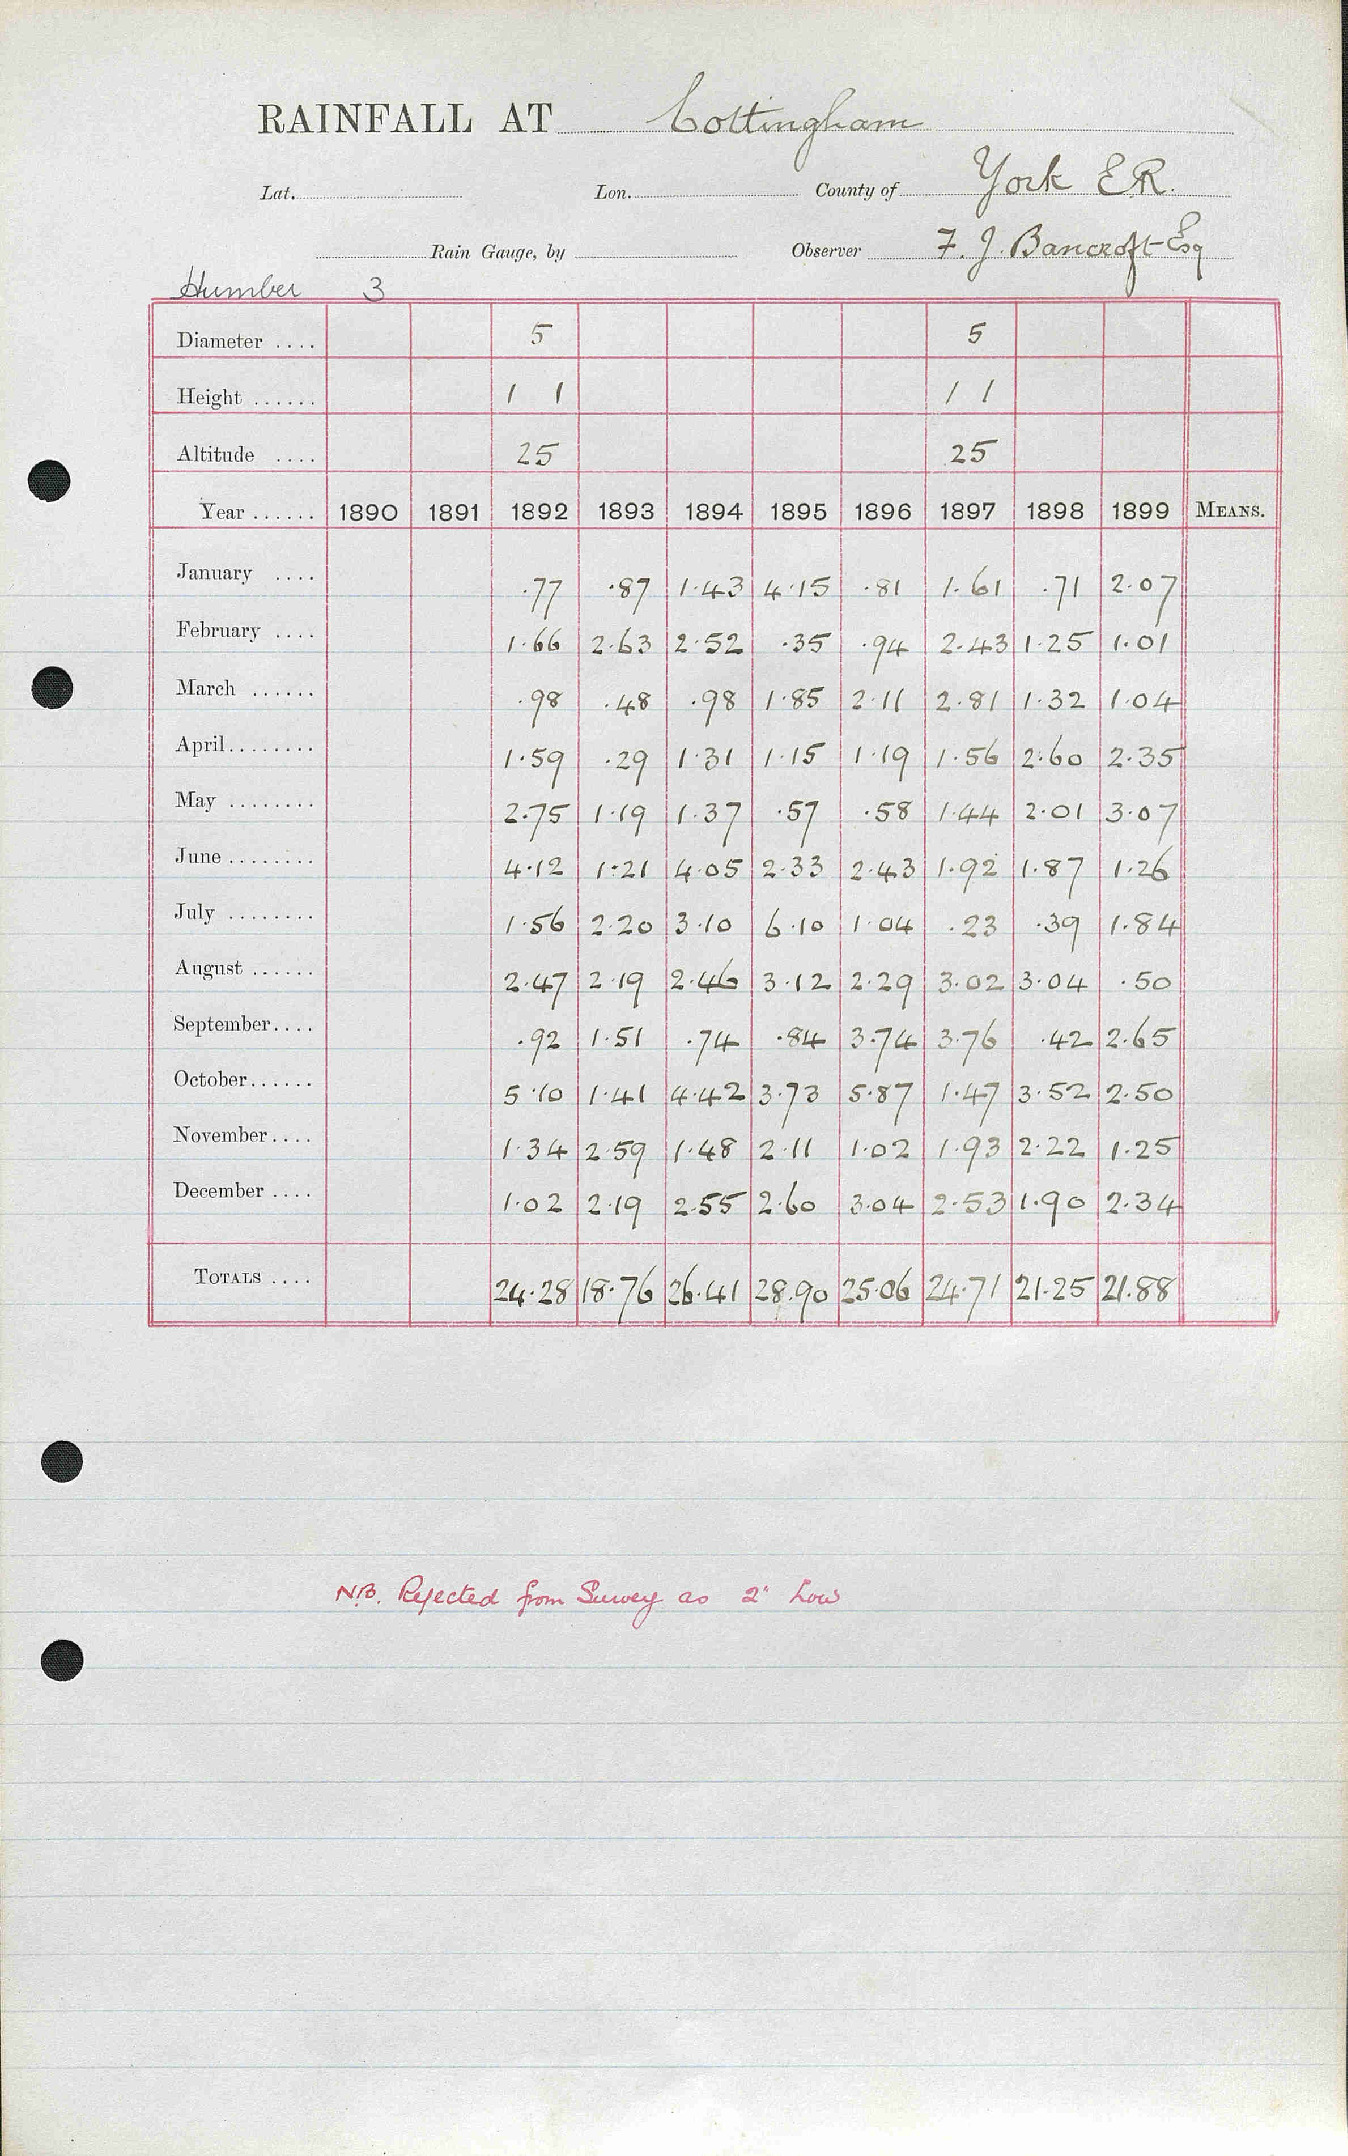 RAINFALL AT Cottingham
Lat. Lon. County of York E.R.
Rain Gauge, by Observer F. J. Bancroft Esq
Humber 3
Diameter .... 5 5
Height ...... 1 1 1 1
Altitude .... 25 25
Year ...... 1890 1891 1892 1893 1894 1895 1896 1897 1898 1899 MEANS.
January .... .77 .87 1.43 4.15 .81 1.61 .71 2.07
February .... 1.66 2.63 2.52 .35 .94 2.43 1.25 1.01
March ...... .98 .48 .98 1.85 2.11 2.81 1.32 1.04
April........ 1.59 .29 1.31 1.15 1.19 1.56 2.60 2.35
May ........ 2.75 1.19 1.37 .57 .58 1.44 2.01 3.07
June ........ 4.12 1.21 4.05 2.33 2.43 1.92 1.87 1.26
July ........ 1.56 2.20 3.10 6.10 1.04 .23 .39 1.84
August ...... 2.47 2.19 2.46 3.12 2.29 3.02 3.04 .50
September.... .92 1.51 .74 .84 3.74 3.76 .42 2.65
October...... 5.10 1.41 4.42 3.73 5.87 1.47 3.52 2.50
November.... 1.34 2.59 1.48 2.11 1.02 1.93 2.22 1.25
December .... 1.02 2.19 2.55 2.60 3.04 2.53 1.90 2.34
TOTALS .... 24.28 18.76 26.41 28.90 25.06 24.71 21.25 21.88
N.B. Rejected from Survey as 2" Low